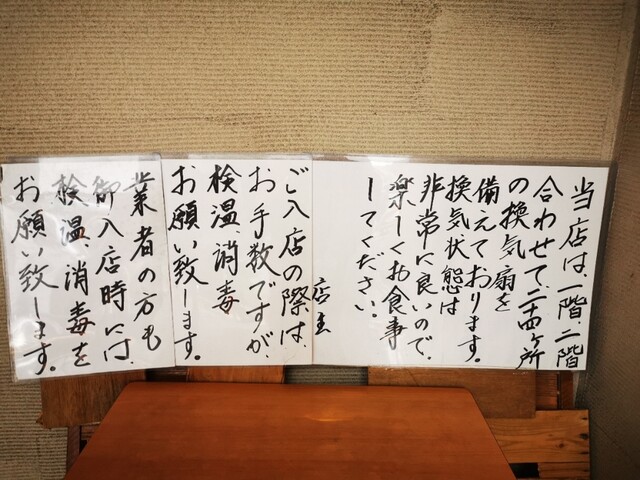 当店は、一階、二階
合わせて、二十四ヶ所
の換気扇を
備えております。
換気状態は
非常に良いので、
楽しくお食事
してください。
店主
ご入店の際は、
お手数ですが、
検温、消毒
お願い致します。
業者の方も
御入店時には、
検温、消毒を
お願い致します。